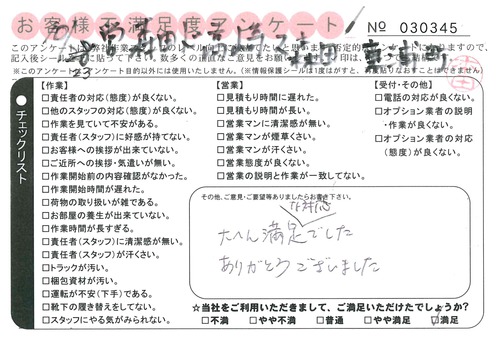 お客様不満足度アンケート
№ 030345
【作業】
□責任者の対応(態度)が良くない。
□他のスタッフの対応(態度)が良くない。
□作業を見ていて不安がある。
□責任者(スタッフ)に好感が持てない。
□お客様への挨拶が出来ていない。
□ご近所への挨拶・気遣いが無い。
□作業開始前の内容確認がなかった。
□作業開始時間が遅れた。
□荷物の取り扱いが雑である。
□お部屋の養生が出来ていない。
□作業時間が長すぎる。
□責任者(スタッフ)に清潔感が無い。
□責任者(スタッフ)が汗くさい。
□トラックが汚い。
□梱包資材が汚い。
□運転が不安(下手)である。
□靴下の履き替えをしてない。
□スタッフにやる気がみられない。
【営業】
□見積もり時間に遅れた。
□見積もり時間が長い。
□営業マンに清潔感が無い。
□営業マンが煙草くさい。
□営業マンが汗くさい。
□営業態度が良くない。
□営業の説明と作業が一致してない。
【受付・その他】
□電話の対応が良くない。
□オプション業者の説明・作業が良くない。
□オプション業者の対応(態度)が良くない。
チェックリスト
その他、ご意見・ご要望等ありましたらお書き下さい。
な対応
大へん満足でした
ありがとうございました
☆当社をご利用いただきまして、ご満足いただけたでしょうか?
□不満 □やや不満 □普通 □やや満足 ☑満足